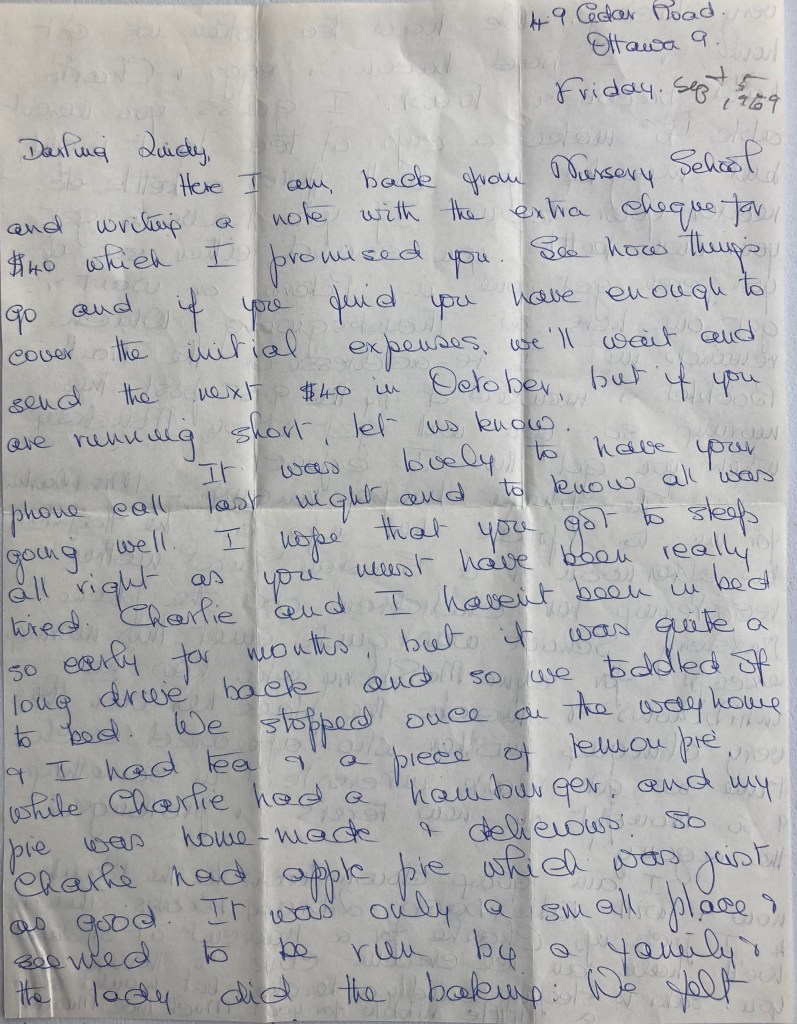 49 Cedar Road.
Ottawa 9.
Friday. Sept 5
1969
Darling Lindy,
Here I am, back from Nursery School
and writing a note with the extra cheque for
$40 which I promised you. See how things
go and if you find you have enough to
cover the initial expenses, we'll wait and
send the next $40 in October, but if you
are running short, let us know.
It was lovely to have your
phone call last night and to know all was
going well. I hope that you got to sleep
all right as you must have been really
tired. Charlie and I havent been in bed
so early for months, but it was quite a
long drive back and so we toddled off
to bed. We stopped once on the way home
& I had tea & a piece of lemon pie,
while Charlie had a hamburger, and my
pie was home-made & delicious. So
Charlie had apple pie which was just
as good. It was only a small place &
seemed to be run by a family &
the lady did the baking. We felt